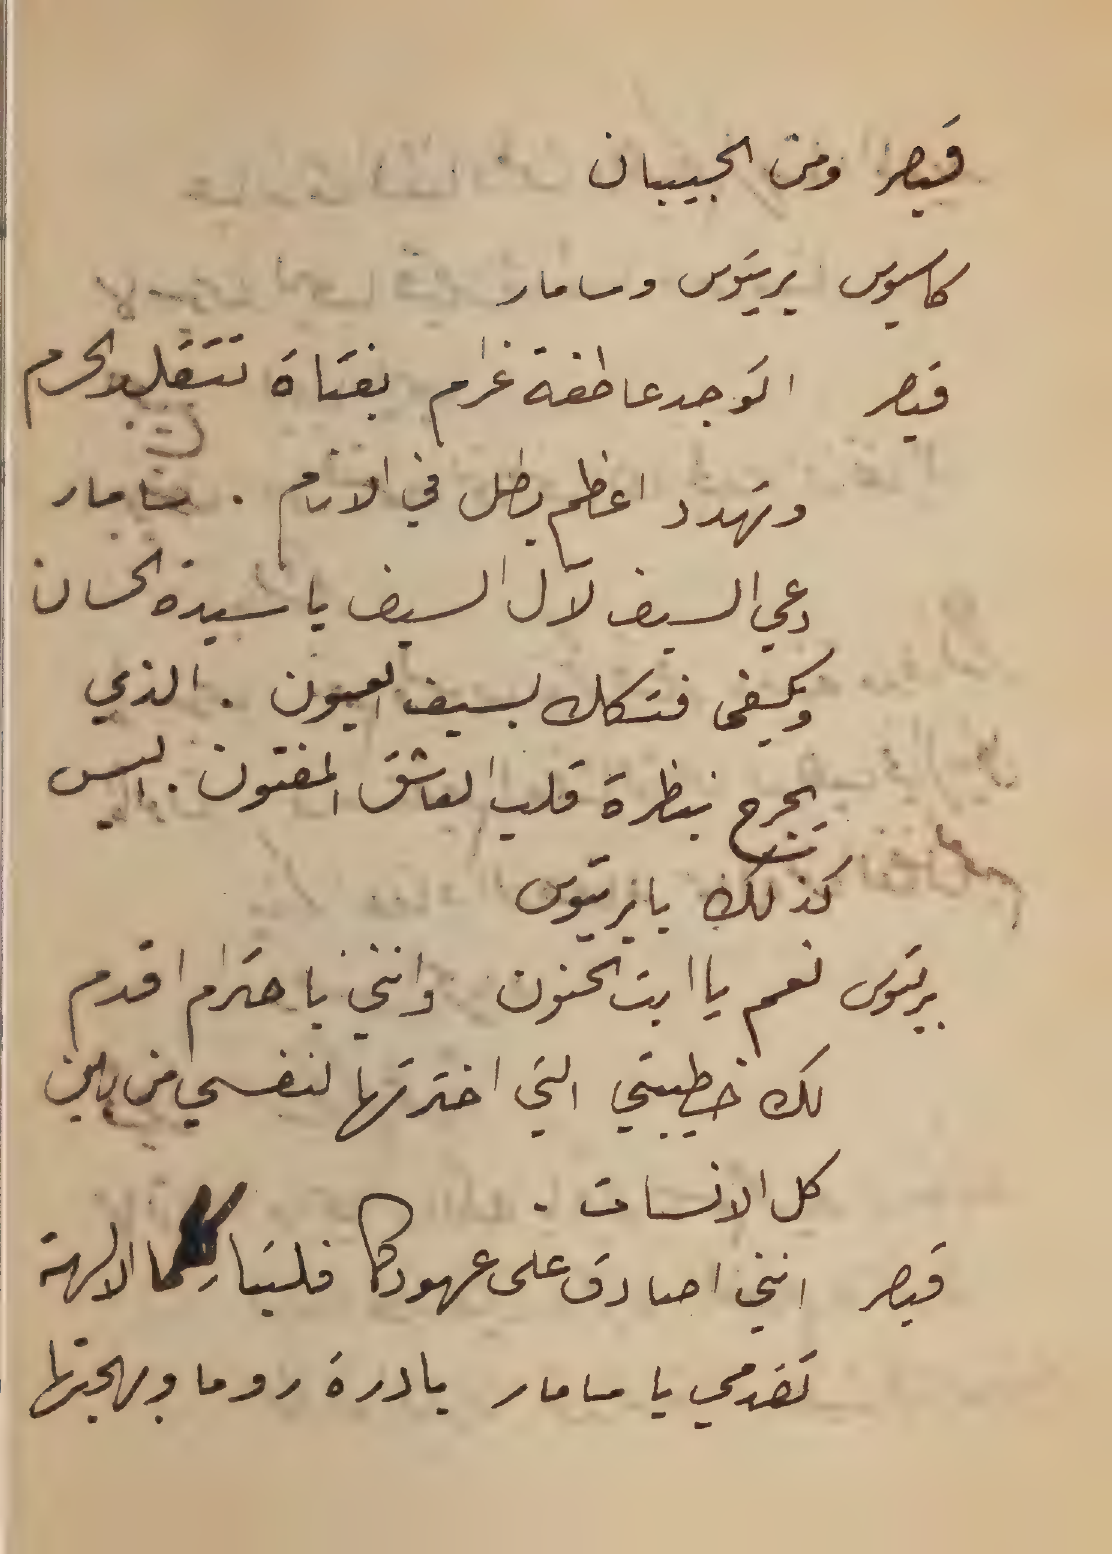 قيصر ومن الحبيبان
كاسيوس بريتوس وسامار
قيصر اتوجد عاطفة غرام بفتاة تتقلد الحرام
وتهدد اعظم بطل في الانام . سامار
دعي السيف لآل السيف يا سيدة الحسان
ويكفى فتكك بسيف العيون . الذي
يجرح بنظرة قلب العاشق المفتون . اليس
كذلك يا بريتوس
بريتوس نعم يا ابت الحنون وانني باحترام اقدم
لك خطيبتي التي اخترتها لنفسي من بين
كل الانسات .
قيصر انني اصادق على عهودكما فلتبارككما الالهة
تقدمي يا سامار يا درة روما وبهجتها